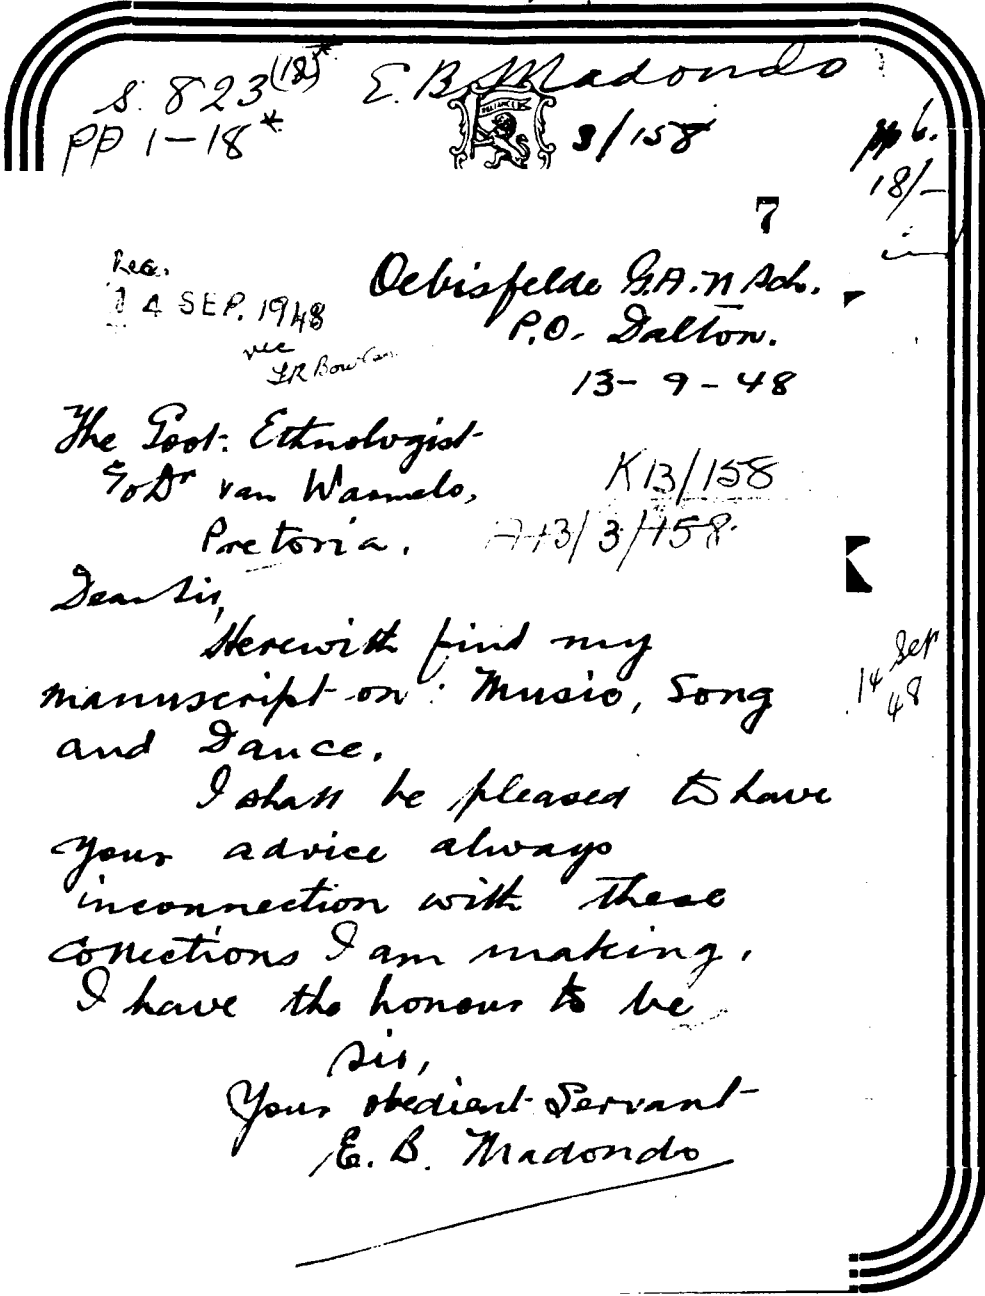 S. 823 (18)* E. B. Madondo
PP 1-18*
RELIANCE
3/158
pp 6.
18/-
7
Rec.
14 SEP. 1948
Oebisfelde G.A.N Sch.
P.O. Dalton.
13-9-48
The Govt: Ethnologist
c/o Dr van Warmelo,
Pretoria.
K13/158
A+3/3/158
Dear Sir,
Herewith find my
manuscript on: Music, Song
and Dance.
14 Sep
48
I shall be pleased to have
your advice always
inconnection with these
collections I am making.
I have the honour to be
Sir,
Your obedient Servant
E. B. Madondo
K